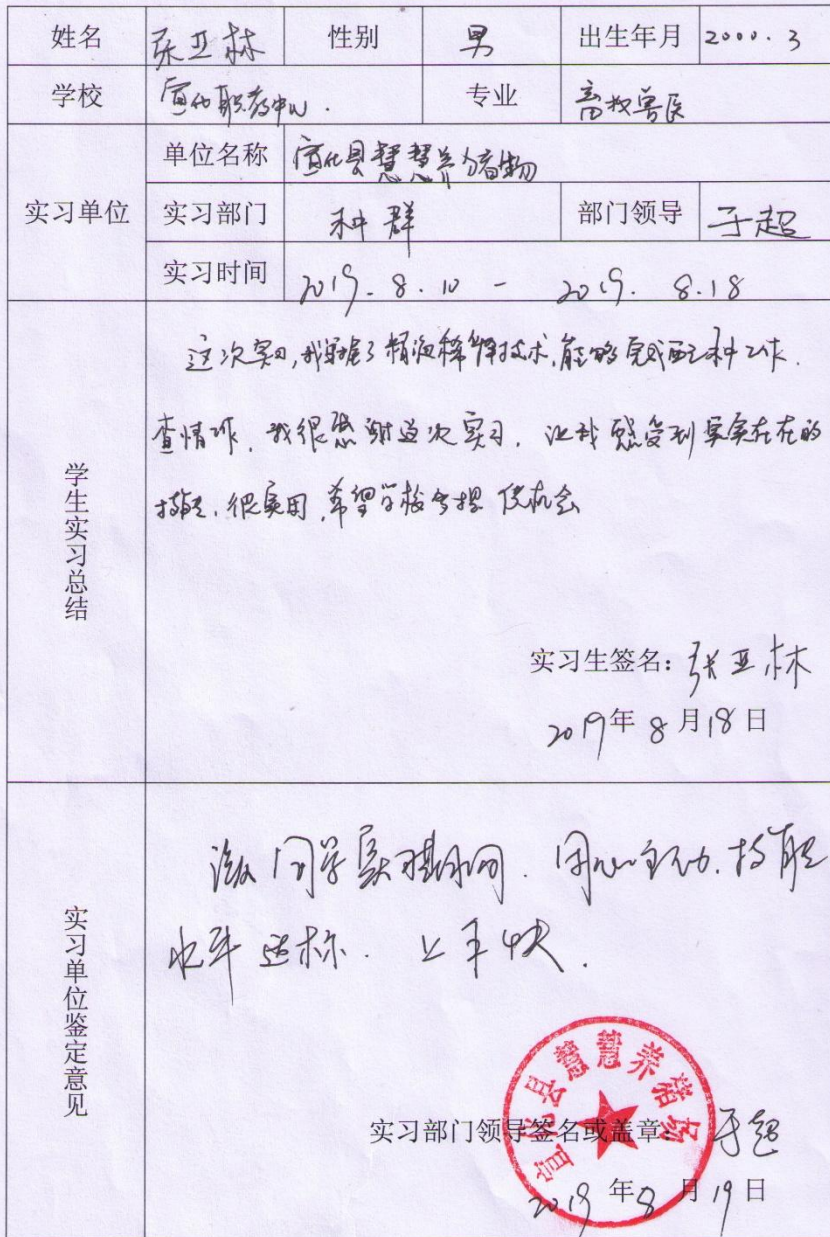 姓名 张亚林 性别 男 出生年月 2000.3
学校 宣化职教中心. 专业 畜牧兽医
实习单位 单位名称 宣化县慧慧养猪场
实习部门 种群 部门领导 于超
实习时间 2019.8.10 - 2019.8.18
学生实习总结
这次实习,我掌握了精液稀释技术,能够完成配种工作.
查情工作.我很感谢这次实习.让我感受到实实在在的
技能.很实用,希望学校多提供机会
实习生签名:张亚林
2019年8月18日
实习单位鉴定意见
该同学实习期间.用心主动.技能
水平达标.上手快.
宣化县慧慧养猪场
实习部门领导签名或盖章:于超
2019年8月19日